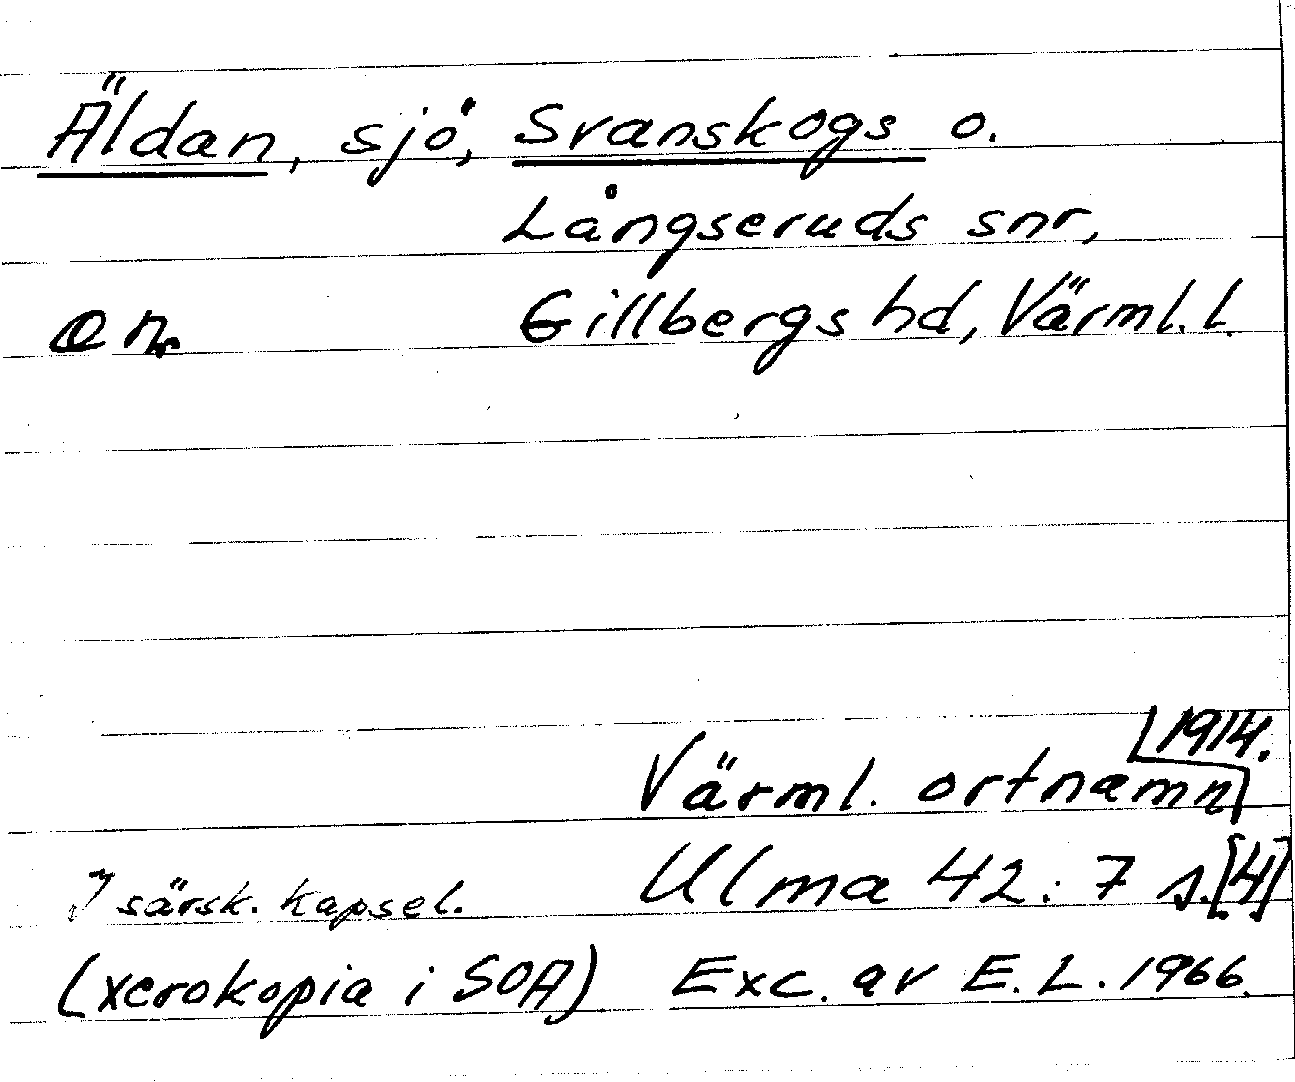 Äldan, sjö, Svanskogs o.
Långseruds snr,
onr Gillbergs hd, Värml. l.
1914.
Värml. ortnamn
I särsk. kapsel. Ulma 42:7 s.[4]
(xerokopia i SOA) Exc. av E.L. 1966.